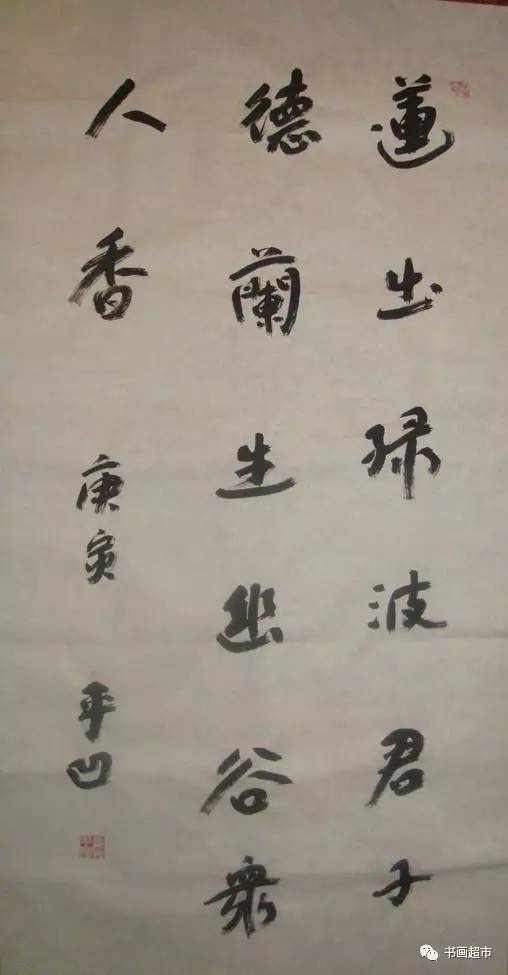 蓮出緑波君子
德蘭生幽谷衆
人香
庚寅 平凹
书画超市